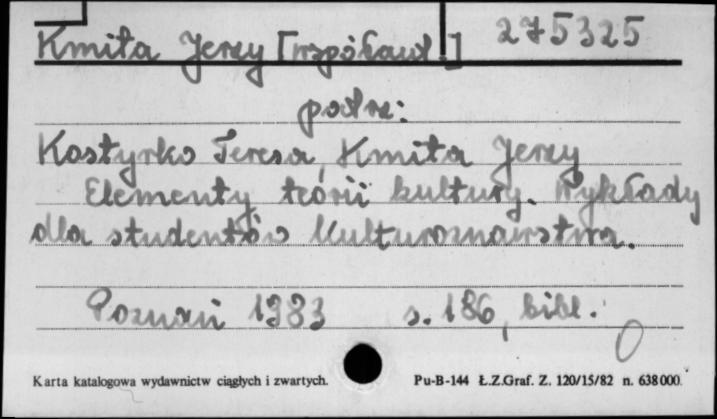 Kmita Jerzy [współaut.] 275325
podrz:
Kostyrko Teresa, Kmita Jerzy
Elementy teorii kultury. Wykłady
dla studentów kulturoznawstwa.
Poznań 1983 s. 186, bibl.
0
Karta katalogowa wydawnictw ciągłych i zwartych. Pu-B-144 Ł.Z.Graf. Z. 120/15/82 n. 638000.